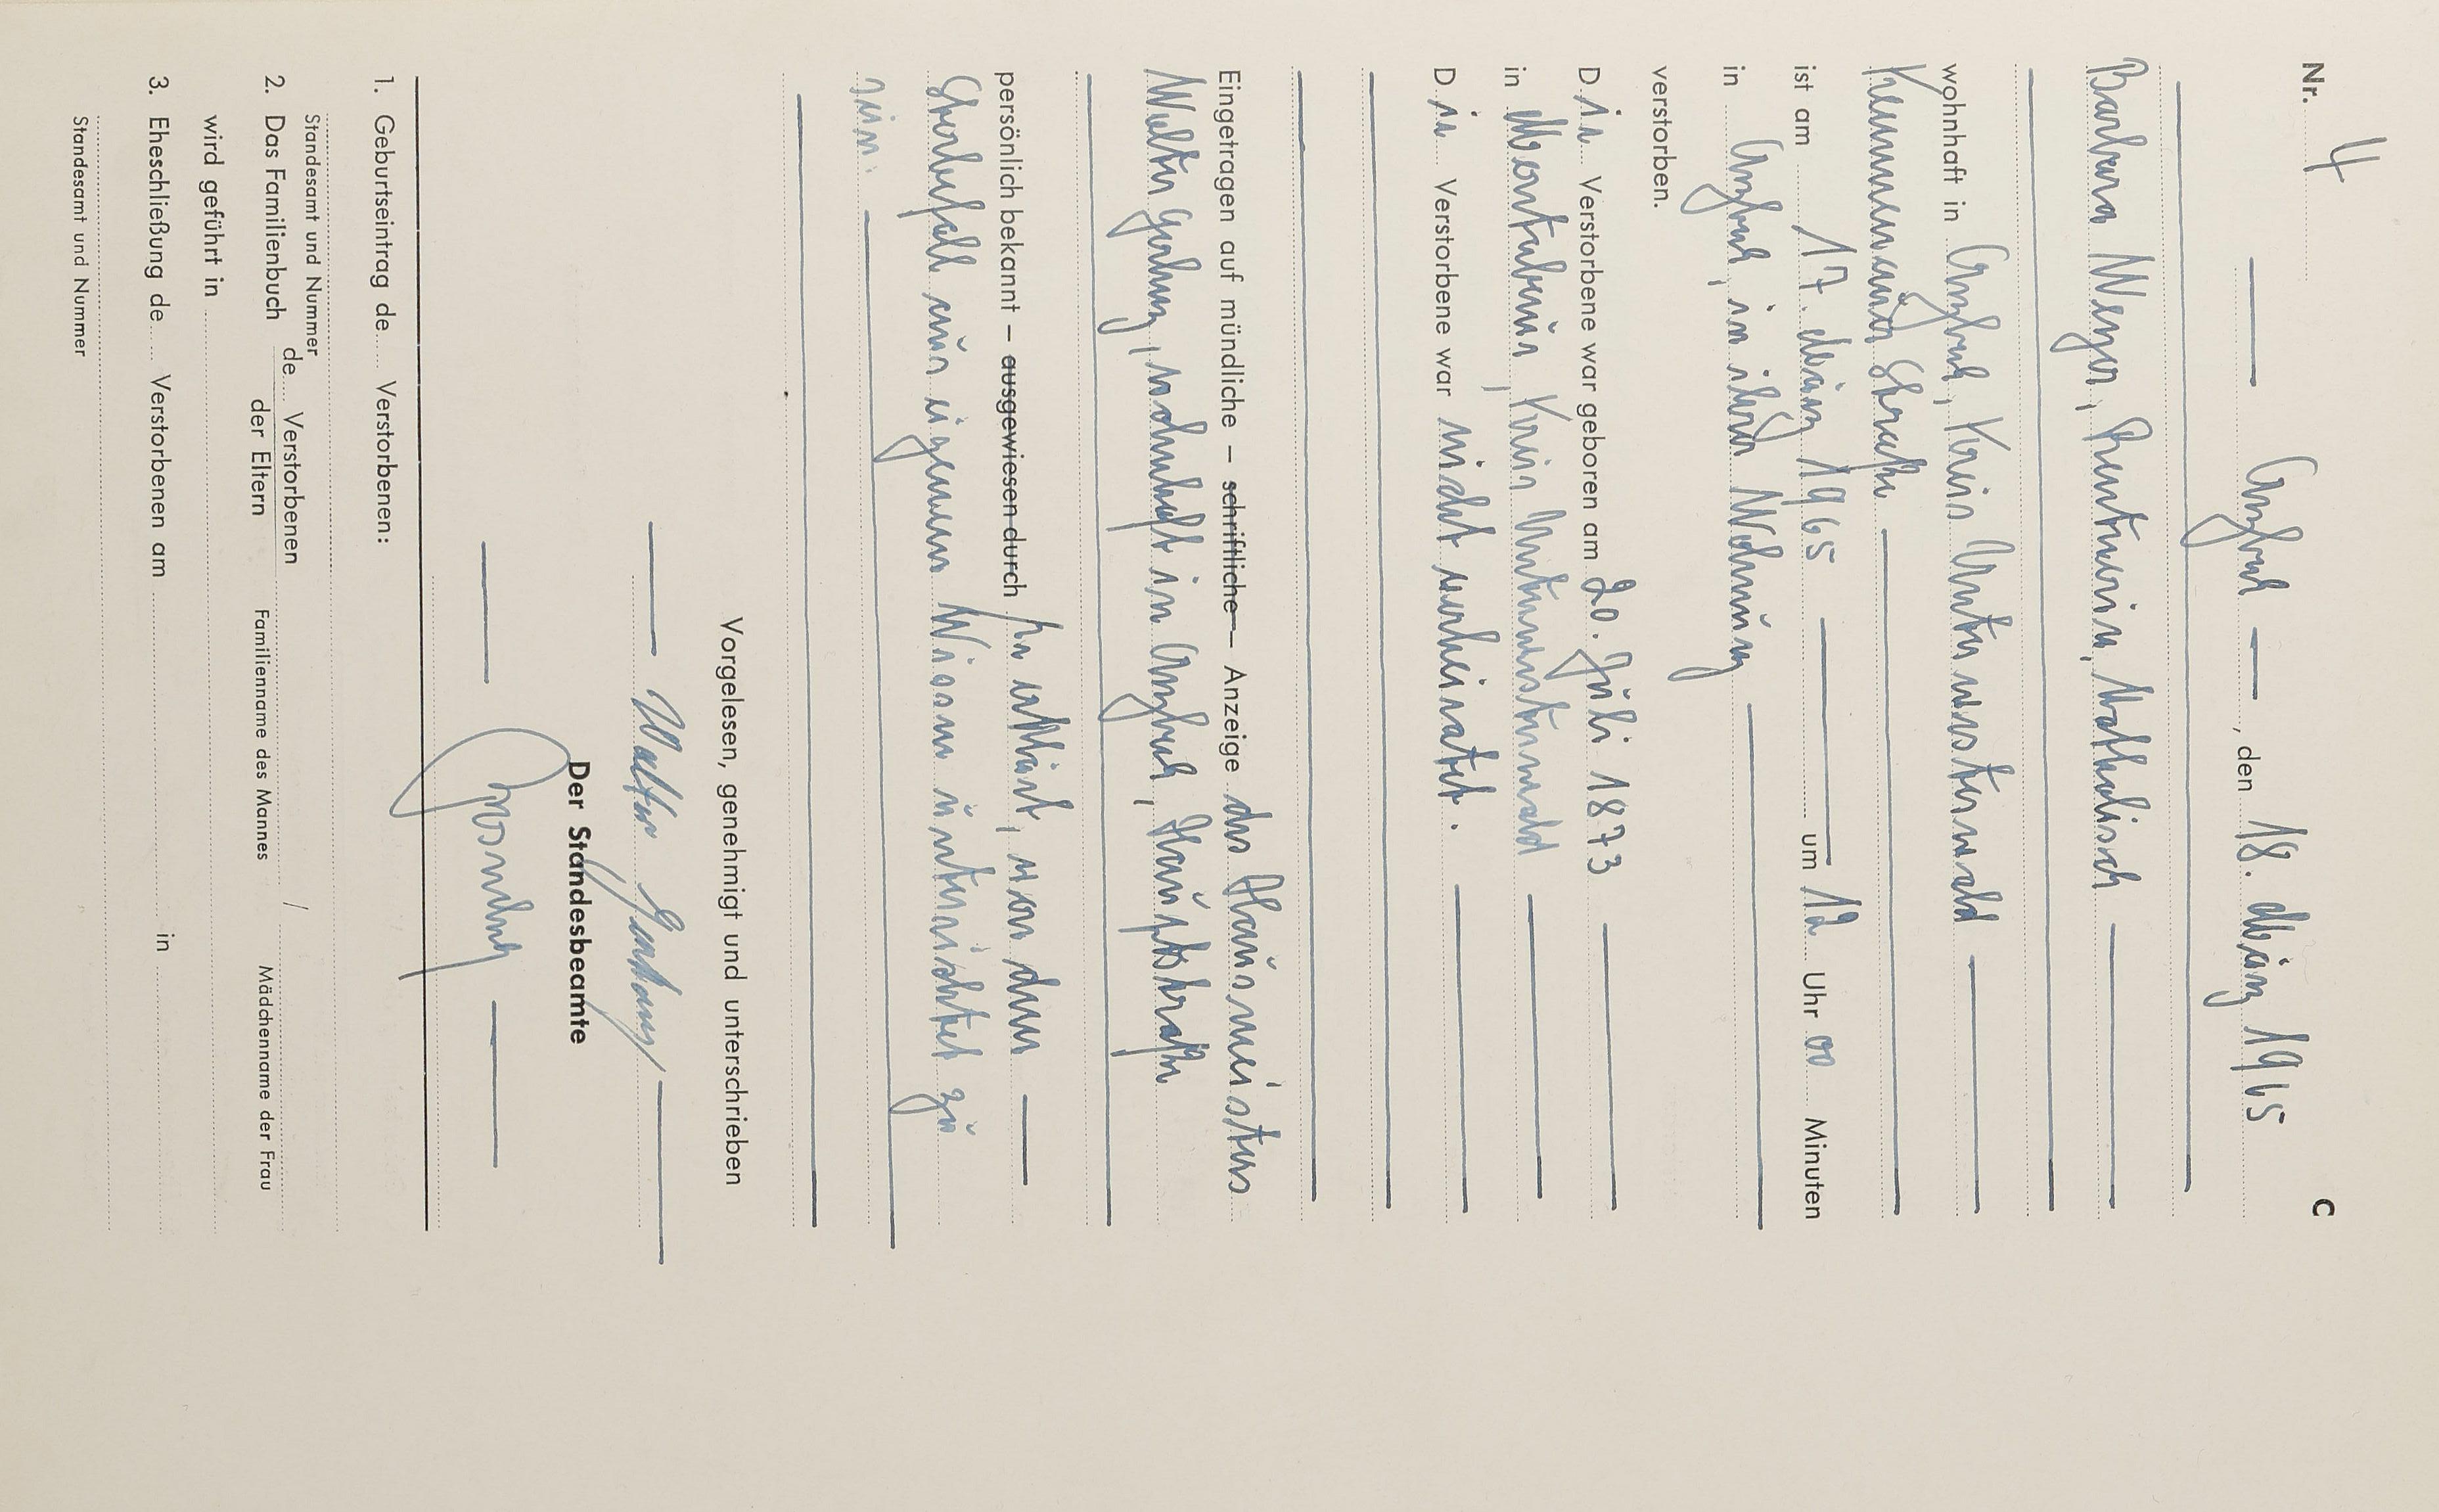 Nr. 4 C
Arzbach, den 18. März 1965
Barbara Weyer, Rentnerin, katholisch
wohnhaft in Arzbach, Kreis Unterwesterwald
Kemmenauer Straße
ist am 17. März 1965 um 12 Uhr 00 Minuten
in Arzbach, in ihrer Wohnung
verstorben.
Die Verstorbene war geboren am 20. Juli 1873
in Montabaur, Kreis Unterwesterwald
Die Verstorbene war nicht verheiratet.
Eingetragen auf mündliche – schriftliche – Anzeige des Hausmeisters
Walter Gerharz, wohnhaft in Arzbach, Hauptstraße
persönlich bekannt – ausgewiesen durch Er erklärt, von dem
Sterbefall aus eigenem Wissen unterrichtet zu
sein.
Vorgelesen, genehmigt und unterschrieben
Walter Gerharz
Der Standesbeamte
1. Geburtseintrag de Verstorbenen:
Standesamt und Nummer
2. Das Familienbuch de Verstorbenen /
der Eltern Familienname des Mannes Mädchenname der Frau
wird geführt in
3. Eheschließung de Verstorbenen am in
Standesamt und Nummer